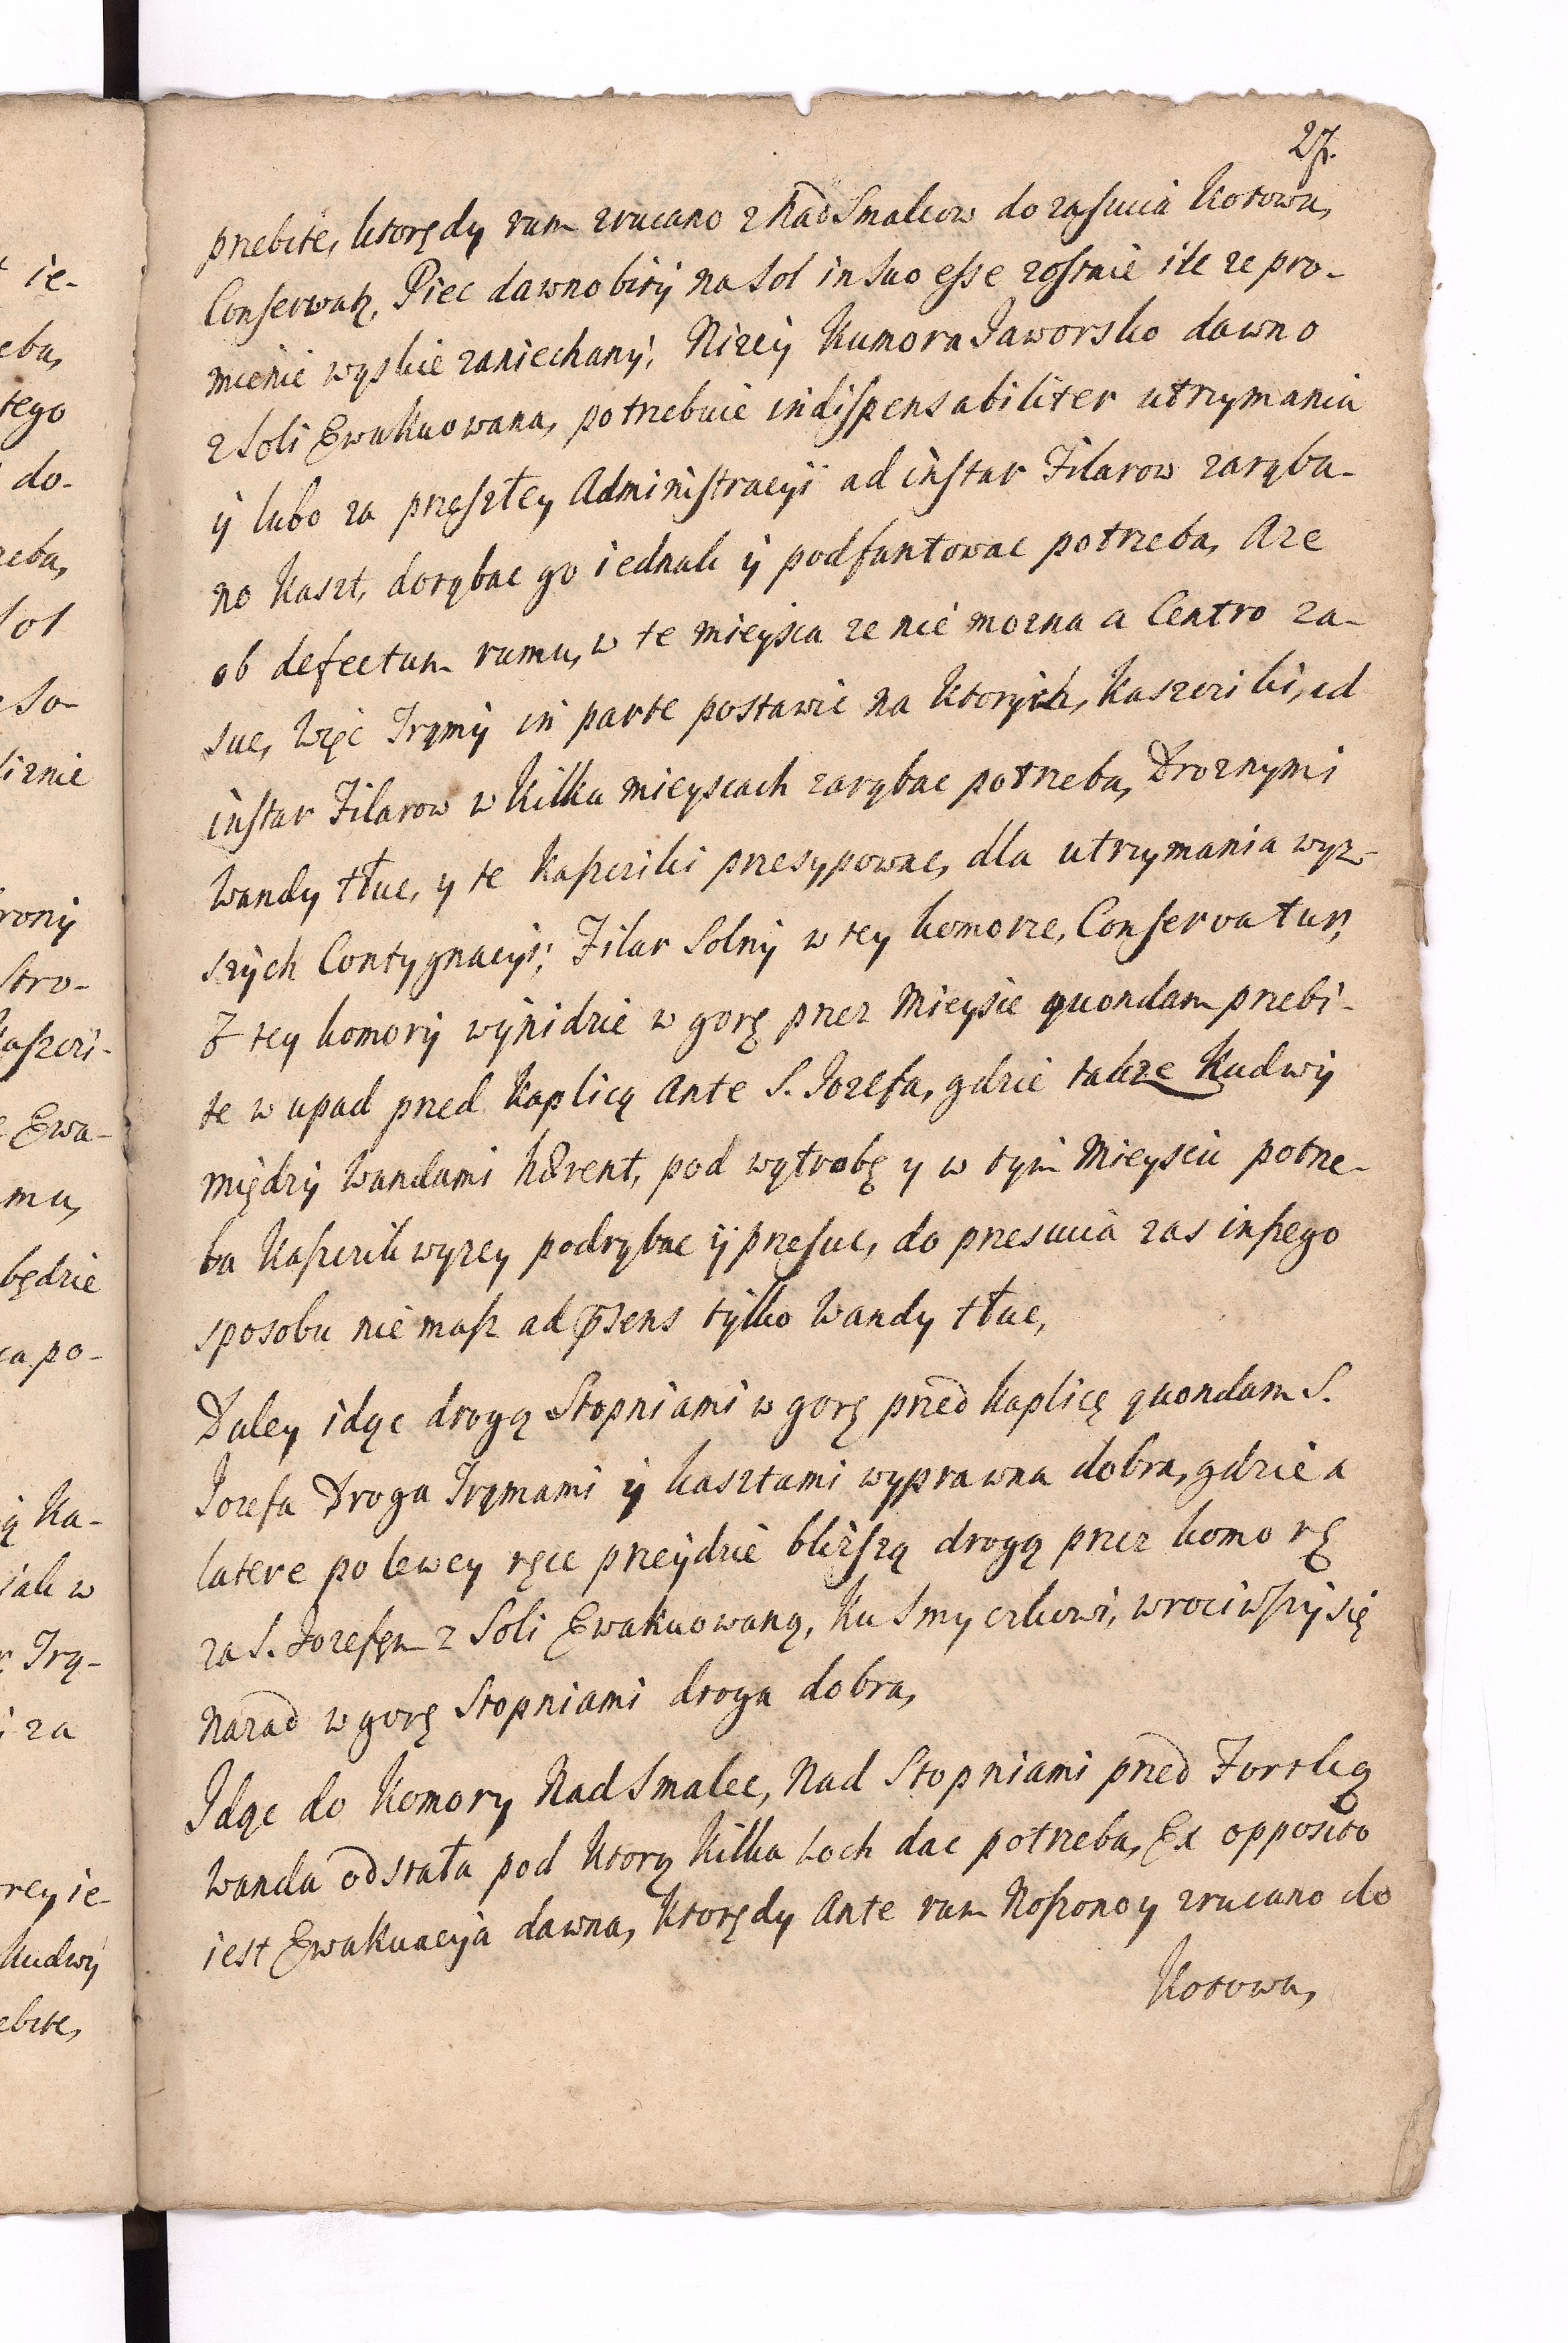 27.
przebite, ktorędy rum zrucano z Nad Smalcow do zasucia Kotowa,
Conserwatr, Piec dawno bity na Sol in suo esse zostaie ile ze pro-
mienie wąskie zaniechany; Nizey Kumora Jaworsko dawno
z Soli Ewakuowana, potrzebuie indispensabiliter utrzymania
ÿ lubo za przeszłey Administracyi ad instar Filarow zarąba-
no Kaszt, dorąbac go iednak ÿ podfantowac potrzeba, Aze
ob defectum rumu, w te mieysca ze nie mozna a Centro za-
suc, Więc Trąmy in parte postawic na Ktorych, Kaszciki, ad
instar Filarow w Kilku mieyscach zarąbac potrzeba, Droznymi
Wandy tłuc, y te Kaszciki przesypowac, dla utrzymania wyz-
szych Contygnacyi; Filar Solny w tey komorze, Conservatur,
Z tey komory wynidzie w gorę przez Mieysce quondam przebi-
te w upad przed Kaplicą Ante S. Jozefa, gdzie takze Kudwy
między Wandami hærent, pod wątrobę y w tym Mieyscu potrze-
ba Kaszcik wyzey podrąbac ÿ przesuc, do przesucia zas inszego
sposobu nie masz ad præsens tylko Wandy tłuc,
Daley idąc drogą Stopniami w gorę przed Kaplicę quondam S.
Jozefa Droga Trąmami ÿ kasztami wyprawna dobra, gdzie a
latere po lewey ręce przeydzie bliższą drogą przez komorę
za S. Jozefem z Soli Ewakuowaną, Ku Smyczkowi, wrociwszy się
Nazad w gorę Stopniami droga dobra,
Idąc do Komory Nad Smalec, Nad Stopniami przed Fortką
Wanda odstała pod Ktorą Kilka Łoch dac potrzeba, Ex opposito
iest Ewakuacyia dawna, Ktorędy Ante rum Noszono y zrucano do
Kotowa,